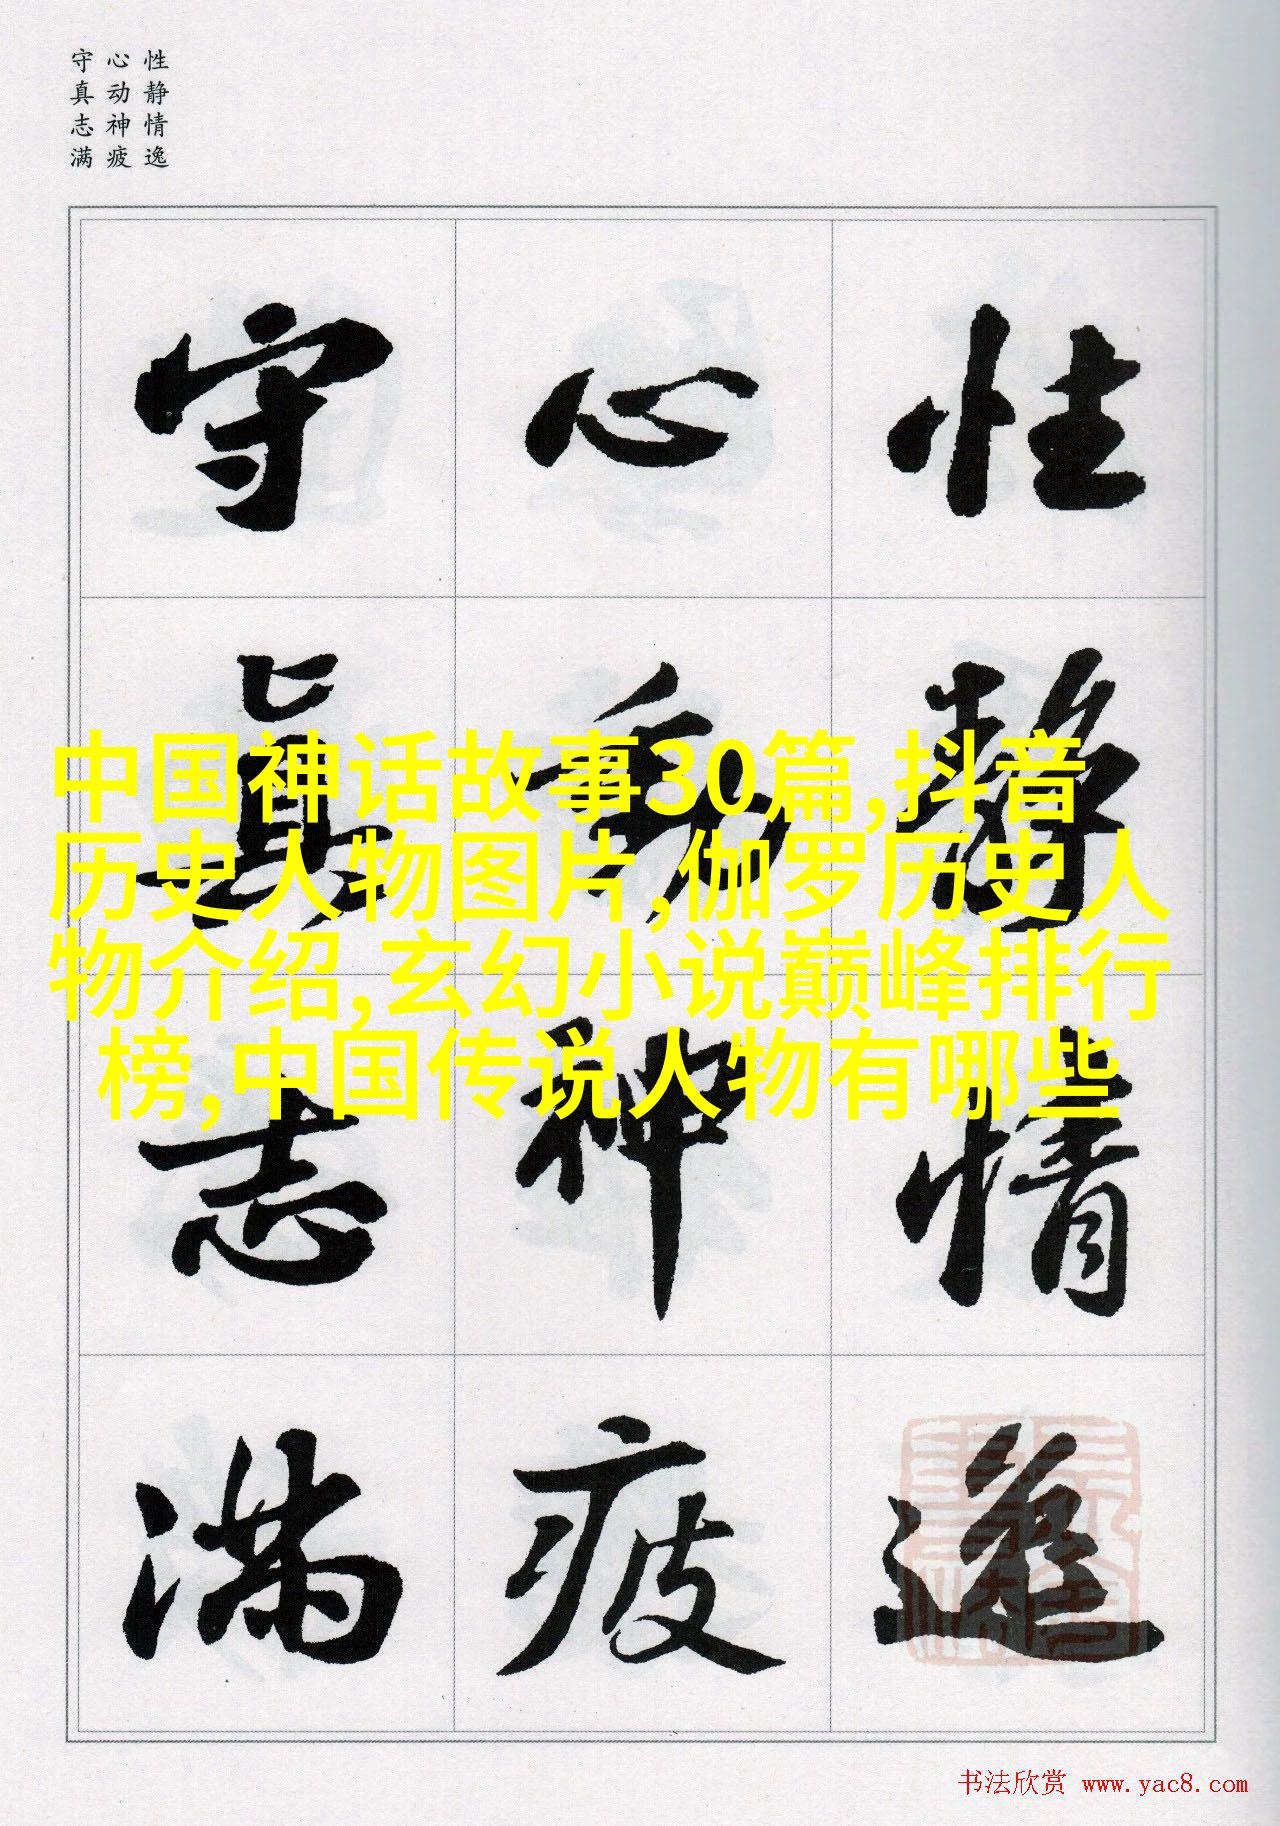 性静情逸
心动神疲
守真志满
性静情逸
心动神疲
守真志满
中国神话故事30篇,抖音
历史人物图片,伽罗历史人
物介绍,玄幻小说巅峰排行
榜,中国传说人物有哪些
书法欣赏 www.yac8.com